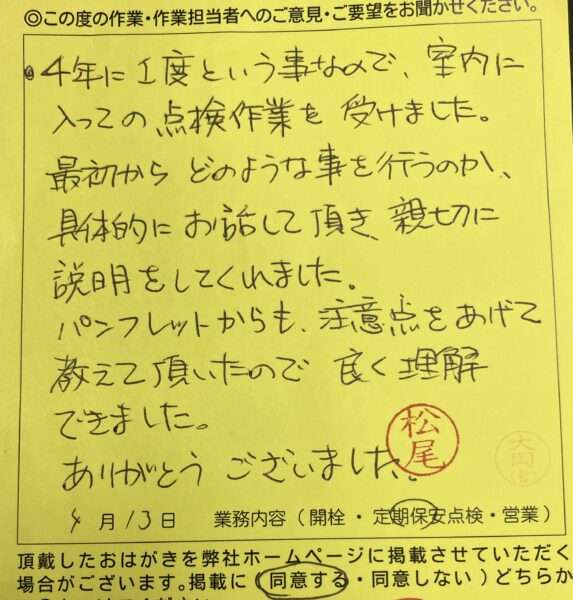 ◎この度の作業・作業担当者へのご意見・ご要望をお聞かせください。
4年に1度という事なので、室内に
入っての点検作業を受けました。
最初からどのような事を行うのか、
具体的にお話して頂き、親切に
説明をしてくれました。
パンフレットからも、注意点をあげて
教えて頂いたので良く理解
できました。
ありがとうございました。
松尾
大岡
4月13日 業務内容(開栓・定期保安点検・営業)
頂戴したおはがきを弊社ホームページに掲載させていただく
場合がございます。掲載に(同意する・同意しない)どちらか